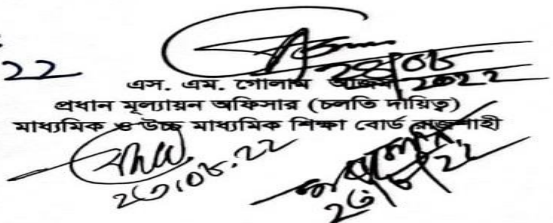 22
২৪/০৮/2022
এস. এম. গোলাম আজম
প্রধান মূল্যায়ন অফিসার (চলতি দায়িত্ব)
মাধ্যমিক ও উচ্চ মাধ্যমিক শিক্ষা বোর্ড রাজশাহী
২৩.০৮.22
২৩/৮/22